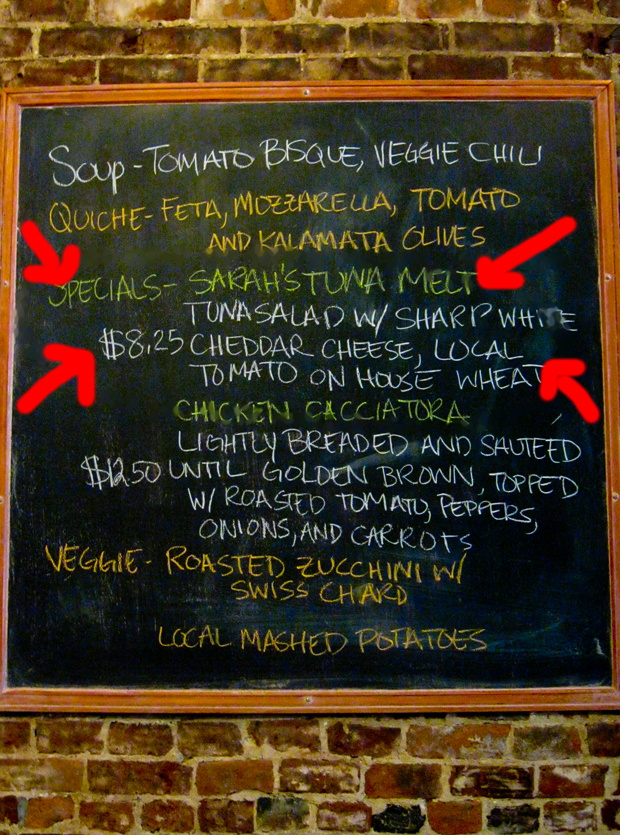 Soup - TOMATO BISQUE, VEGGIE CHILI
QUICHE - FETA, MOZZARELLA, TOMATO
AND KALAMATA OLIVES
SPECIALS - SARAH'S TUNA MELT
TUNA SALAD W/ SHARP WHITE
$8.25 CHEDDAR CHEESE, LOCAL
TOMATO ON HOUSE WHEAT
CHICKEN CACCIATORA
LIGHTLY BREADED AND SAUTEED
$12.50 UNTIL GOLDEN BROWN, TOPPED
W/ ROASTED TOMATO, PEPPERS,
ONIONS, AND CARROTS
VEGGIE - ROASTED ZUCCHINI W/
SWISS CHARD
LOCAL MASHED POTATOES